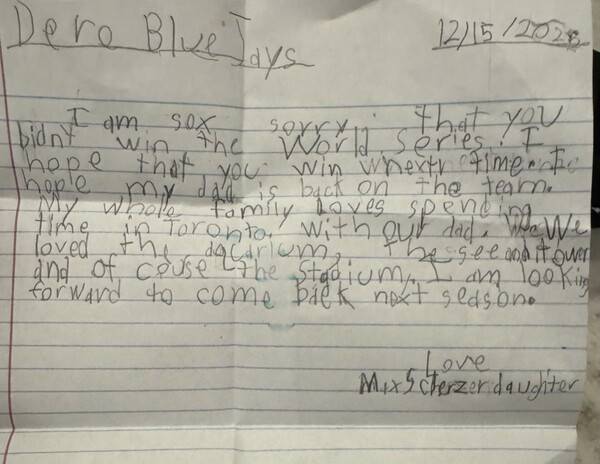 Dero Blue Jays
12/15/2025
I am sox sorry that you
bidnt win the World series. I
hope that you win wnextr time. I
hople my dad is back on the team.
My whole family loves spending
time in Toronto, with our dad. We
loved the aqcarium, the see and tower
and of couse the stadium. I am looking
forward to come back next season.
Love
Max Scherzer daughter